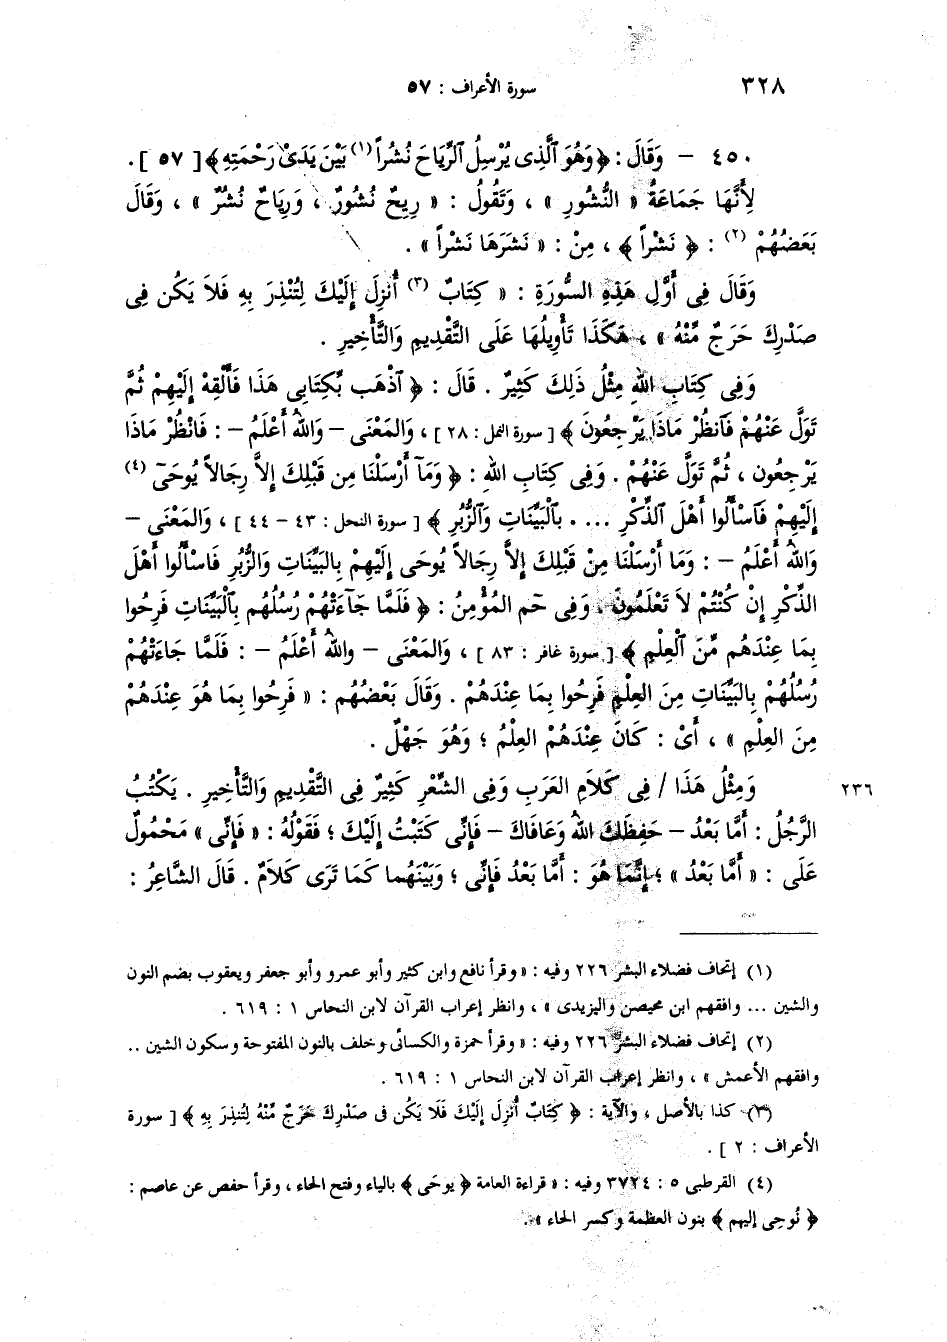 ٣٢٨ سورة الأعراف : ٥٧
٤٥٠ – وَقَالَ : ﴿ وَهُوَ ٱلَّذِى يُرْسِلُ ٱلرِّيَاحَ نُشُراً (١) بَيْنَ يَدَىْ رَحْمَتِهِ ﴾ [ ٥٧ ] .
لِأَنَّهَا جَمَاعَةُ « النُّشُورِ » ، وَتَقُولُ : « رِيحٌ نُشُورٌ ، وَرِيَاحٌ نُشُرٌ » ، وَقَالَ
بَعَضُهُمْ (٢) : ﴿ نَشْراً ﴾ ، مِنْ : « نَشَرَهَا نَشْراً » .
وَقَالَ فِى أَوَّلِ هَذِهِ السُّورَةِ : « كِتَابٌ (٣) أُنزِلَ إِلَيْكَ لِتُنْذِرَ بِهِ فَلاَ يَكُن فِى
صَدْرِكَ حَرَجٌ مِّنْهُ » ، هَكَذَا تَأْوِيلُهَا عَلَى التَّقْدِيمِ وَالتَّأْخِيرِ .
وَفِى كِتَابِ اللهِ مِثْلُ ذَلِكَ كَثِيرٌ . قَالَ : ﴿ ٱذْهَب بِّكِتَابِى هَذَا فَأَلْقِهْ إِلَيْهِمْ ثُمَّ
تَوَلَّ عَنْهُمْ فَٱنظُرْ مَاذَا يَرْجِعُونَ ﴾ [ سورة النمل : ٢٨ ] ، وَالمَعْنَى – وَاللهُ أَعْلَمُ – : فَانْظُرْ مَاذَا
يَرْجِعُون ، ثُمَّ تَوَلَّ عَنْهُمْ . وَفِى كِتَابِ اللهِ : ﴿ وَمَآ أَرْسَلْنَا مِن قَبْلِكَ إِلاَّ رِجَالاً يُوحَىٰٓ (٤)
إِلَيْهِمْ فَٱسْأَلُوا أَهْلَ ٱلذِّكْرِ ... . بِٱلْبَيِّنَاتِ وَٱلزُّبُرِ ﴾ [ سورة النحل : ٤٣ – ٤٤ ] ، وَالمَعْنَى –
وَاللهُ أَعْلَمُ – : وَمَا أَرْسَلْنَا مِنْ قَبْلِكَ إِلاَّ رِجَالاً يُوحَى إِلَيْهِمْ بِالبَيِّنَاتِ وَالزُّبُرِ فَاسْأَلُوا أَهْلَ
الذِّكْرِ إِنْ كُنْتُمْ لاَ تَعْلَمُونَ . وَفِى حَم المُؤْمِنُ : ﴿ فَلَمَّا جَآءَتْهُمْ رُسُلُهُم بِٱلْبَيِّنَاتِ فَرِحُوا
بِمَا عِنْدَهُم مِّنَ ٱلْعِلْمِ ﴾ [ سورة غافر : ٨٣ ] ، وَالمَعْنَى – واللهُ أَعْلَمُ – : فَلَمَّا جَاءَتْهُمْ
رُسُلُهُمْ بِالبَيِّنَاتِ مِنَ العِلْمِ فَرِحُوا بِمَا عِنْدَهُمْ . وَقَالَ بَعْضُهُم : « فَرِحُوا بِمَا هُوَ عِنْدَهُمْ
مِنَ العِلْمِ » ، أَىْ : كَانَ عِنْدَهُمْ العِلْمُ ؛ وَهُوَ جَهْلٌ .
وَمِثْلُ هَذَا / فِى كَلاَمِ العَرَبِ وَفِى الشِّعْرِ كَثِيرٌ فِى التَّقْدِيمِ وَالتَّأْخِيرِ . يَكْتُبُ ٢٣٦
الرَّجُلُ : أَمَّا بَعْدُ – حَفِظَكَ اللهُ وَعَافَاكَ – فَإِنِّى كَتَبْتُ إِلَيْكَ ؛ فَقَوْلُهُ : « فَإِنِّى » مَحْمُولٌ
عَلَى : « أَمَّا بَعْدُ » ؛ إِنَّمَا هُوَ : أَمَّا بَعْدُ فَإِنِّى ؛ وَبَيْنَهُما كَمَا تَرَى كَلاَمٌ . قَالَ الشَّاعِرُ :
(١) إتحاف فضلاء البشر ٢٢٦ وفيه : « وقرأ نافع وابن كثير وأبو عمرو وأبو جعفر ويعقوب بضم النون
والشين ... وافقهم ابن محيصن واليزيدى » ، وانظر إعراب القرآن لابن النحاس ١ : ٦١٩ .
(٢) إتحاف فضلاء البشر ٢٢٦ وفيه : « وقرأ حمزة والكسائى وخلف بالنون المفتوحة وسكون الشين ..
وافقهم الأعمش » ، وانظر إعراب القرآن لابن النحاس ١ : ٦١٩ .
(٣) كذا بالأصل ، والآية : ﴿ كِتَابٌ أُنزِلَ إِلَيْكَ فَلَا يَكُن فى صَدْرِكَ حَرَجٌ مِّنْهُ لِتُنذِرَ بِهِ ﴾ [ سورة
الأعراف : ٢ ] .
(٤) القرطبى ٥ : ٣٧٢٤ وفيه : « قراءة العامة ﴿ يوحَى ﴾ بالياء وفتح الحاء ، وقرأ حفص عن عاصم :
﴿ نُوحِى إليهم ﴾ بنون العظمة وكسر الحاء » .